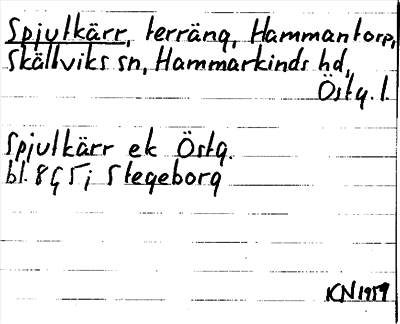 Spjutkärr, terräng, Hammantorp,
Skällviks sn, Hammarkinds hd,
Östg. l.
Spjutkärr ek Östg.
bl. 8G5i Stegeborg
KN 1959